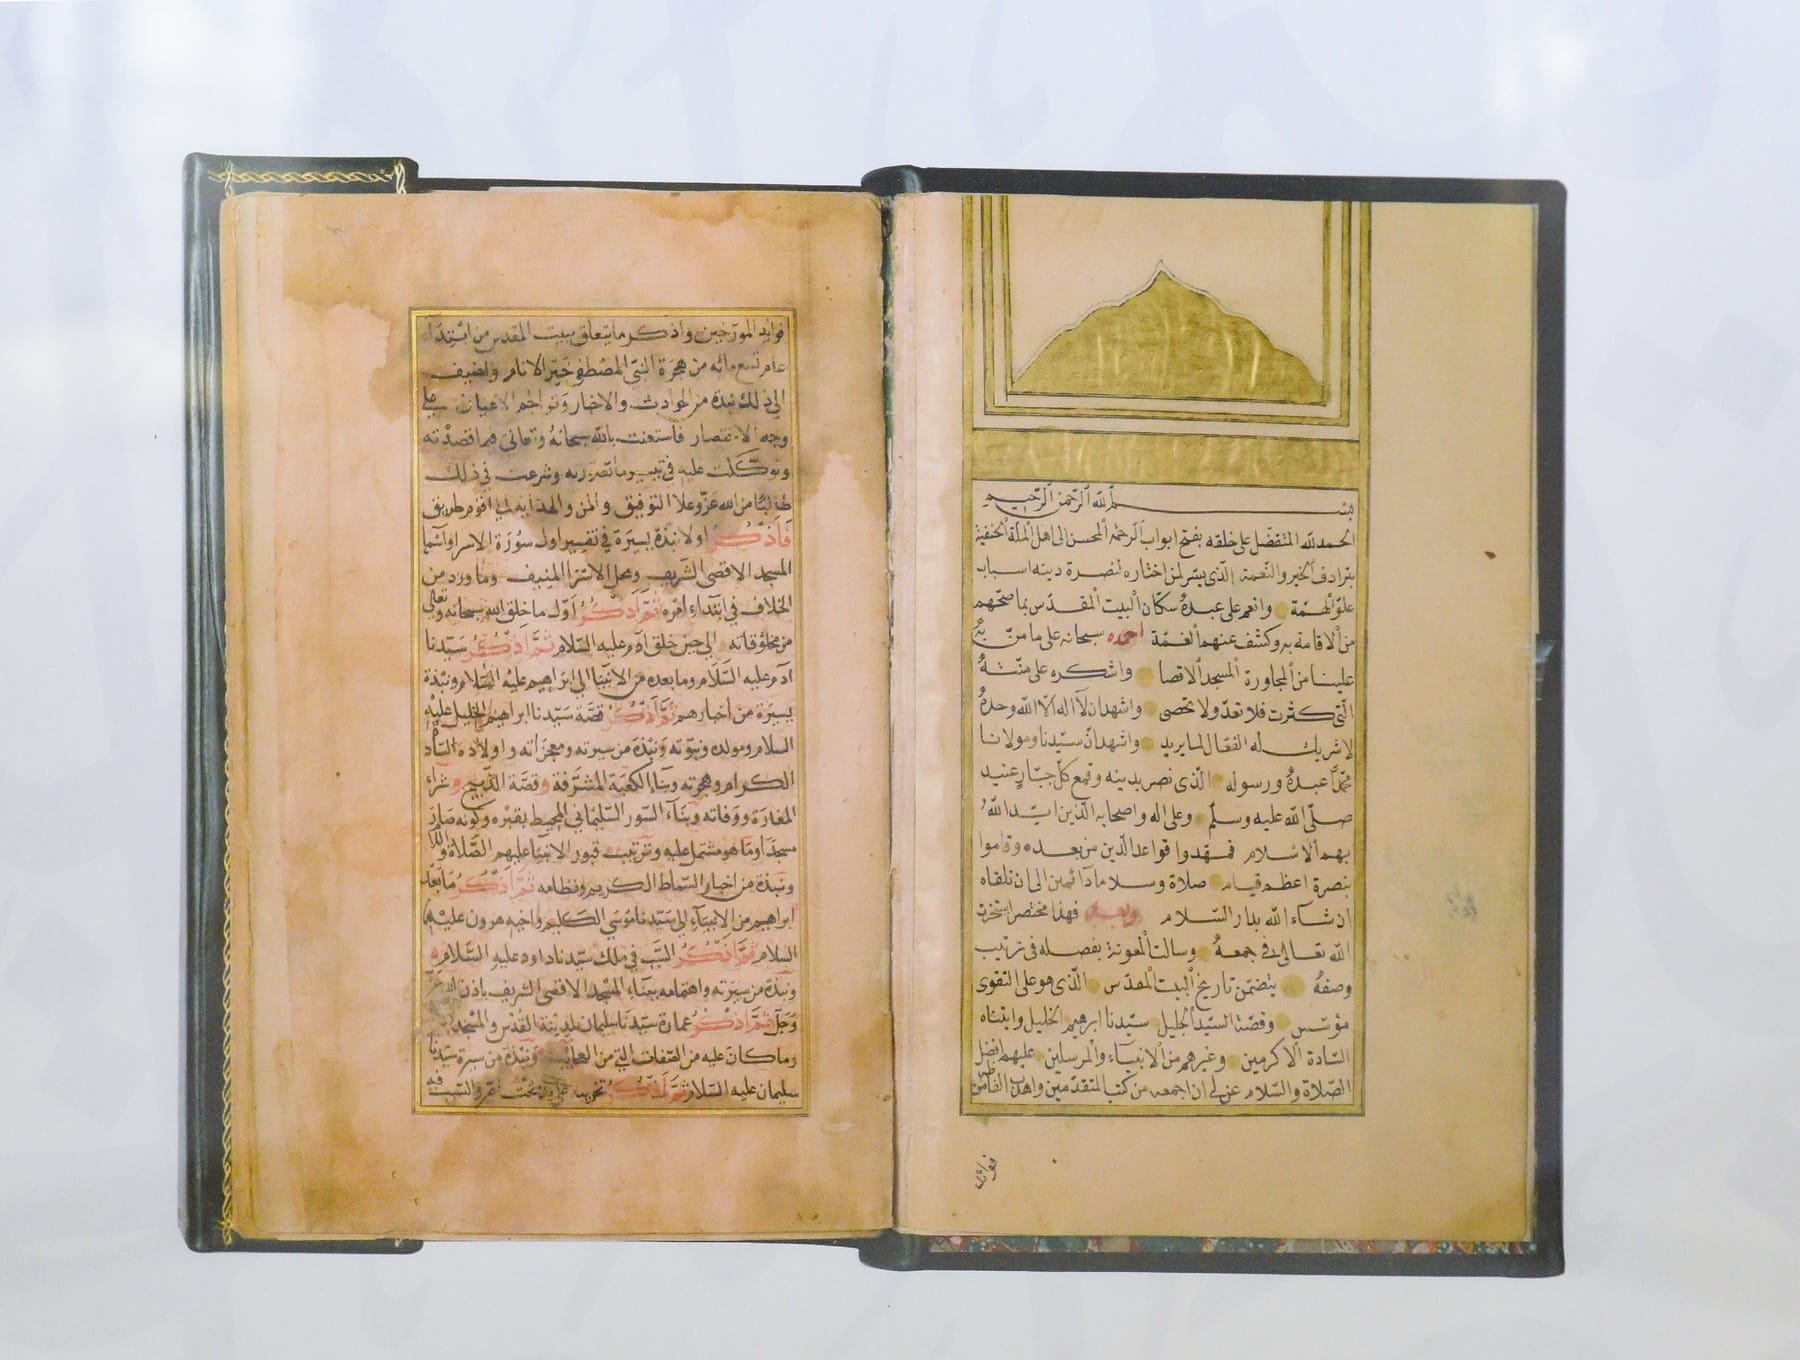 بسم الله الرحمن الرحيم
الحمد لله المتفضل على خلقه بفتح ابواب الرحمة المحسن الى اهل الملة الحنفية
بترادف الخير والنعمة الذى يسر لمن اختاره لنصرة دينه اسباب
علو الهمة وانعم على عبده سكان البيت المقدس بما منحهم
من الاقامة به وكشف عنهم الغمة احمده سبحانه على ما من به
علينا من المجاورة المسجد الاقصا واشكره على منته
التى كثرت فلا تعد ولا تحصى واشهد ان لا اله الا الله وحده
لا شريك له الفعال لما يريد واشهد ان سيدنا ومولانا
محمدا عبده ورسوله الذى نصر بدينه وقمع كل جبار عنيد
صلى الله عليه وسلم وعلى اله واصحابه الذين ايد الله
بهم الاسلام فمهدوا قواعد الدين من بعده وقاموا
بنصرة اعظم قيام صلاة وسلاما دائمين الى ان نلقاه
ان شاء الله بدار السلام وبعد فهذا مختصر استخرت
الله تعالى فى جمعه وسالت المعونة بفضله فى ترتيب
وصفه يتضمن تاريخ البيت المقدس الذى هو على التقوى
مؤسس وقصة السيد الجليل سيدنا ابرهيم الخليل وابنائه
السادة الاكرمين وغيرهم من الانبياء والمرسلين عليهم افضل
الصلاة والسلام عن لى ان اجمعه من كتب المتقدمين واهذب الفاظه من
فوائد المورخين واذكر ما يتعلق ببيت المقدس من ابتداء
عام تسع مائه من هجرة النبى المصطفى خير الانام واضيف
الى ذلك نبذة من الحوادث والاخبار وتراجم الاعيان على
وجه الاختصار فاستعنت بالله سبحانه وتعالى فيما قصدته
وتوكلت عليه فى تيسير ما تصورته وشرعت فى ذلك
طالبا من الله عز وعلا التوفيق والمن والهداية الى اقوم طريق
فاذكر اولا نبذة يسيرة فى تفسير اول سورة الاسرا واسما
المسجد الاقصى الشريف ومحل الاسرا المنيف وما ورد من
الخلاف فى ابتداء امره ثم اذكر اول ما خلق الله سبحانه وتعالى
من مخلوقاته الى حين خلق آدم عليه السلام ثم اذكر سيدنا
آدم عليه السلام وما بعده من الانبيا الى ابراهيم عليه السلام ونبذة
يسيرة من اخبارهم ثم اذكر قصة سيدنا ابراهيم الخليل عليه
السلام ومولده ونبوته ونبذة من سيرته ومعجزاته واولاده السادة
الكرام وهجرته وبناء الكعبة المشرفة وقصة الذبيح وشراء
المغارة ووفاته وبناء السور السليمانى المحيط بقبره وكونه صار
مسجدا وما هو مشتمل عليه وترتيب قبور الانبيا عليهم الصلاة والسلام
ونبذة من اخبار السماط الكريم ونظامه ثم اذكر ما بعد
ابراهيم من الانبياء الى سيدنا موسى الكليم واخيه هرون عليهما
السلام ثم اذكر السبب فى ملك سيدنا داود عليه السلام
ونبذة من سيرته واهتمامه ببناء المسجد الاقصى الشريف باذن الله عز
وجل ثم اذكر عمارة سيدنا سليمان لمدينة القدس والمسجد
وما كان عليه من الصفات التى من العجائب ونبذة من سيرة سيدنا
سليمان عليه السلام ثم اذكر تخريبه على يد بخت نصر والسبب فيه